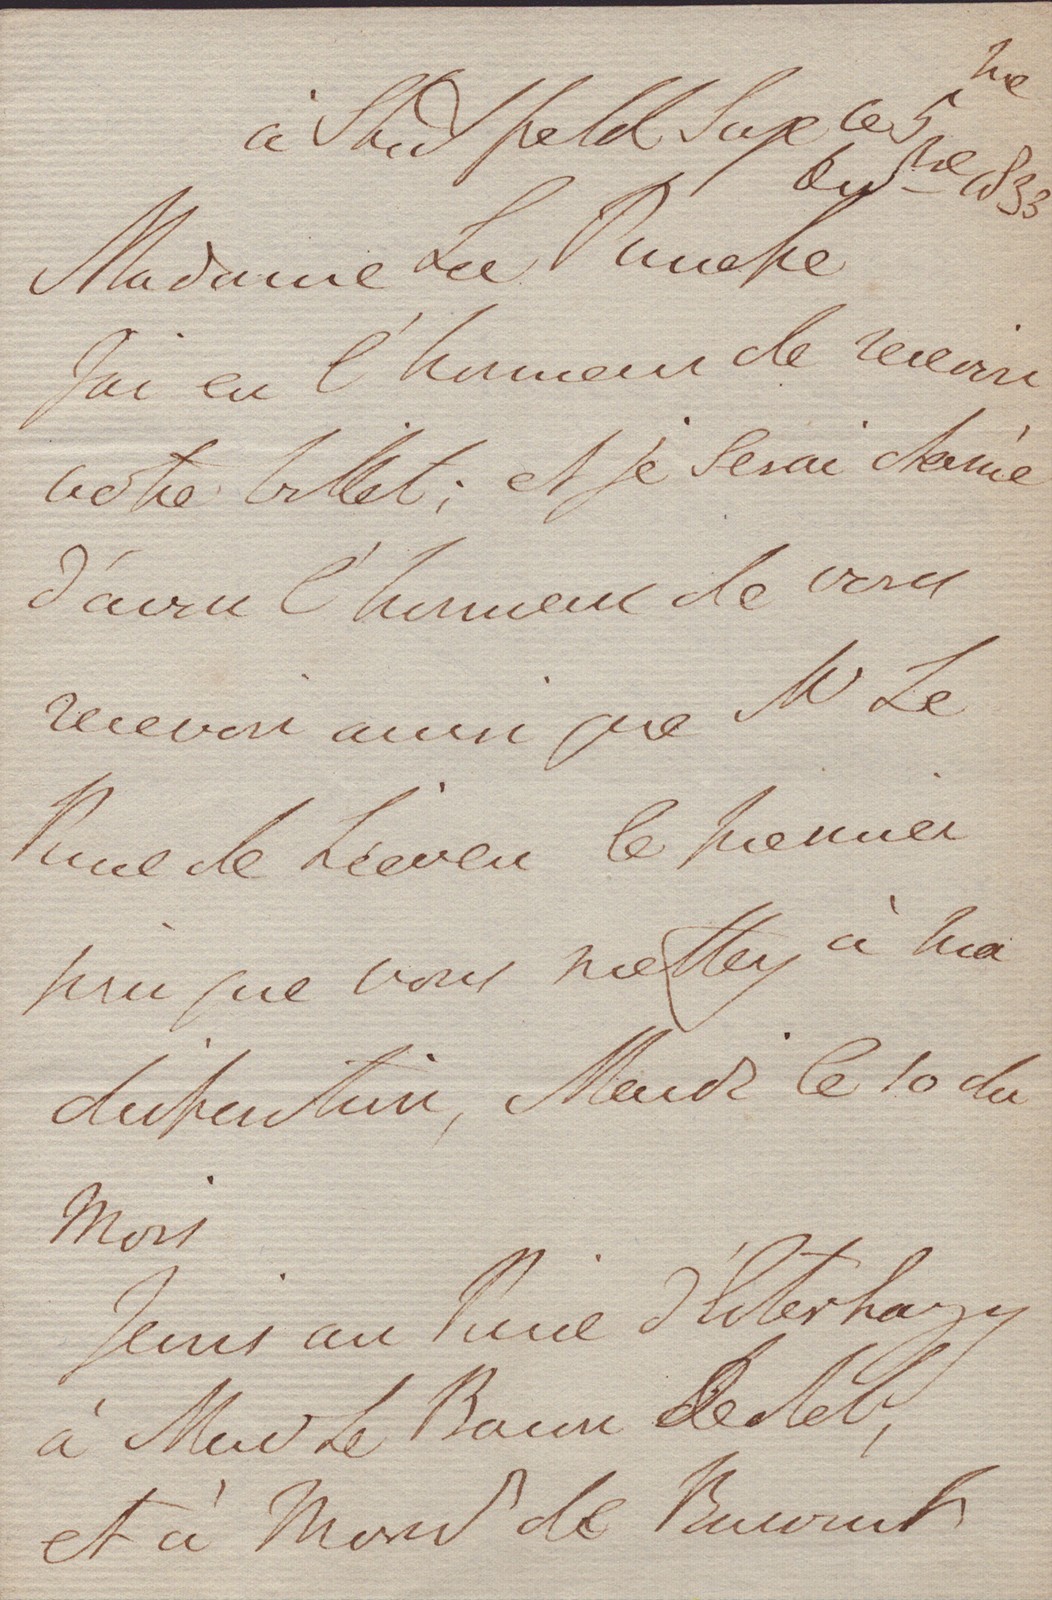 à Strathfield Saye ce 5me
Dec.bre 1833
Madame La Princesse
J'ai eu l'honneur de recevoir
votre billet; et je serai charmé
d'avoir l'honneur de vous
recevoir ainsi que Mr Le
Prince de Lieven le premier
jour que vous mettez à ma
disposition, Mardi le 10 du
Mois
J'ecris au Prince d'Esterhazy
à Monr Le Baron Dedel;
et à Monsr de Bacourt